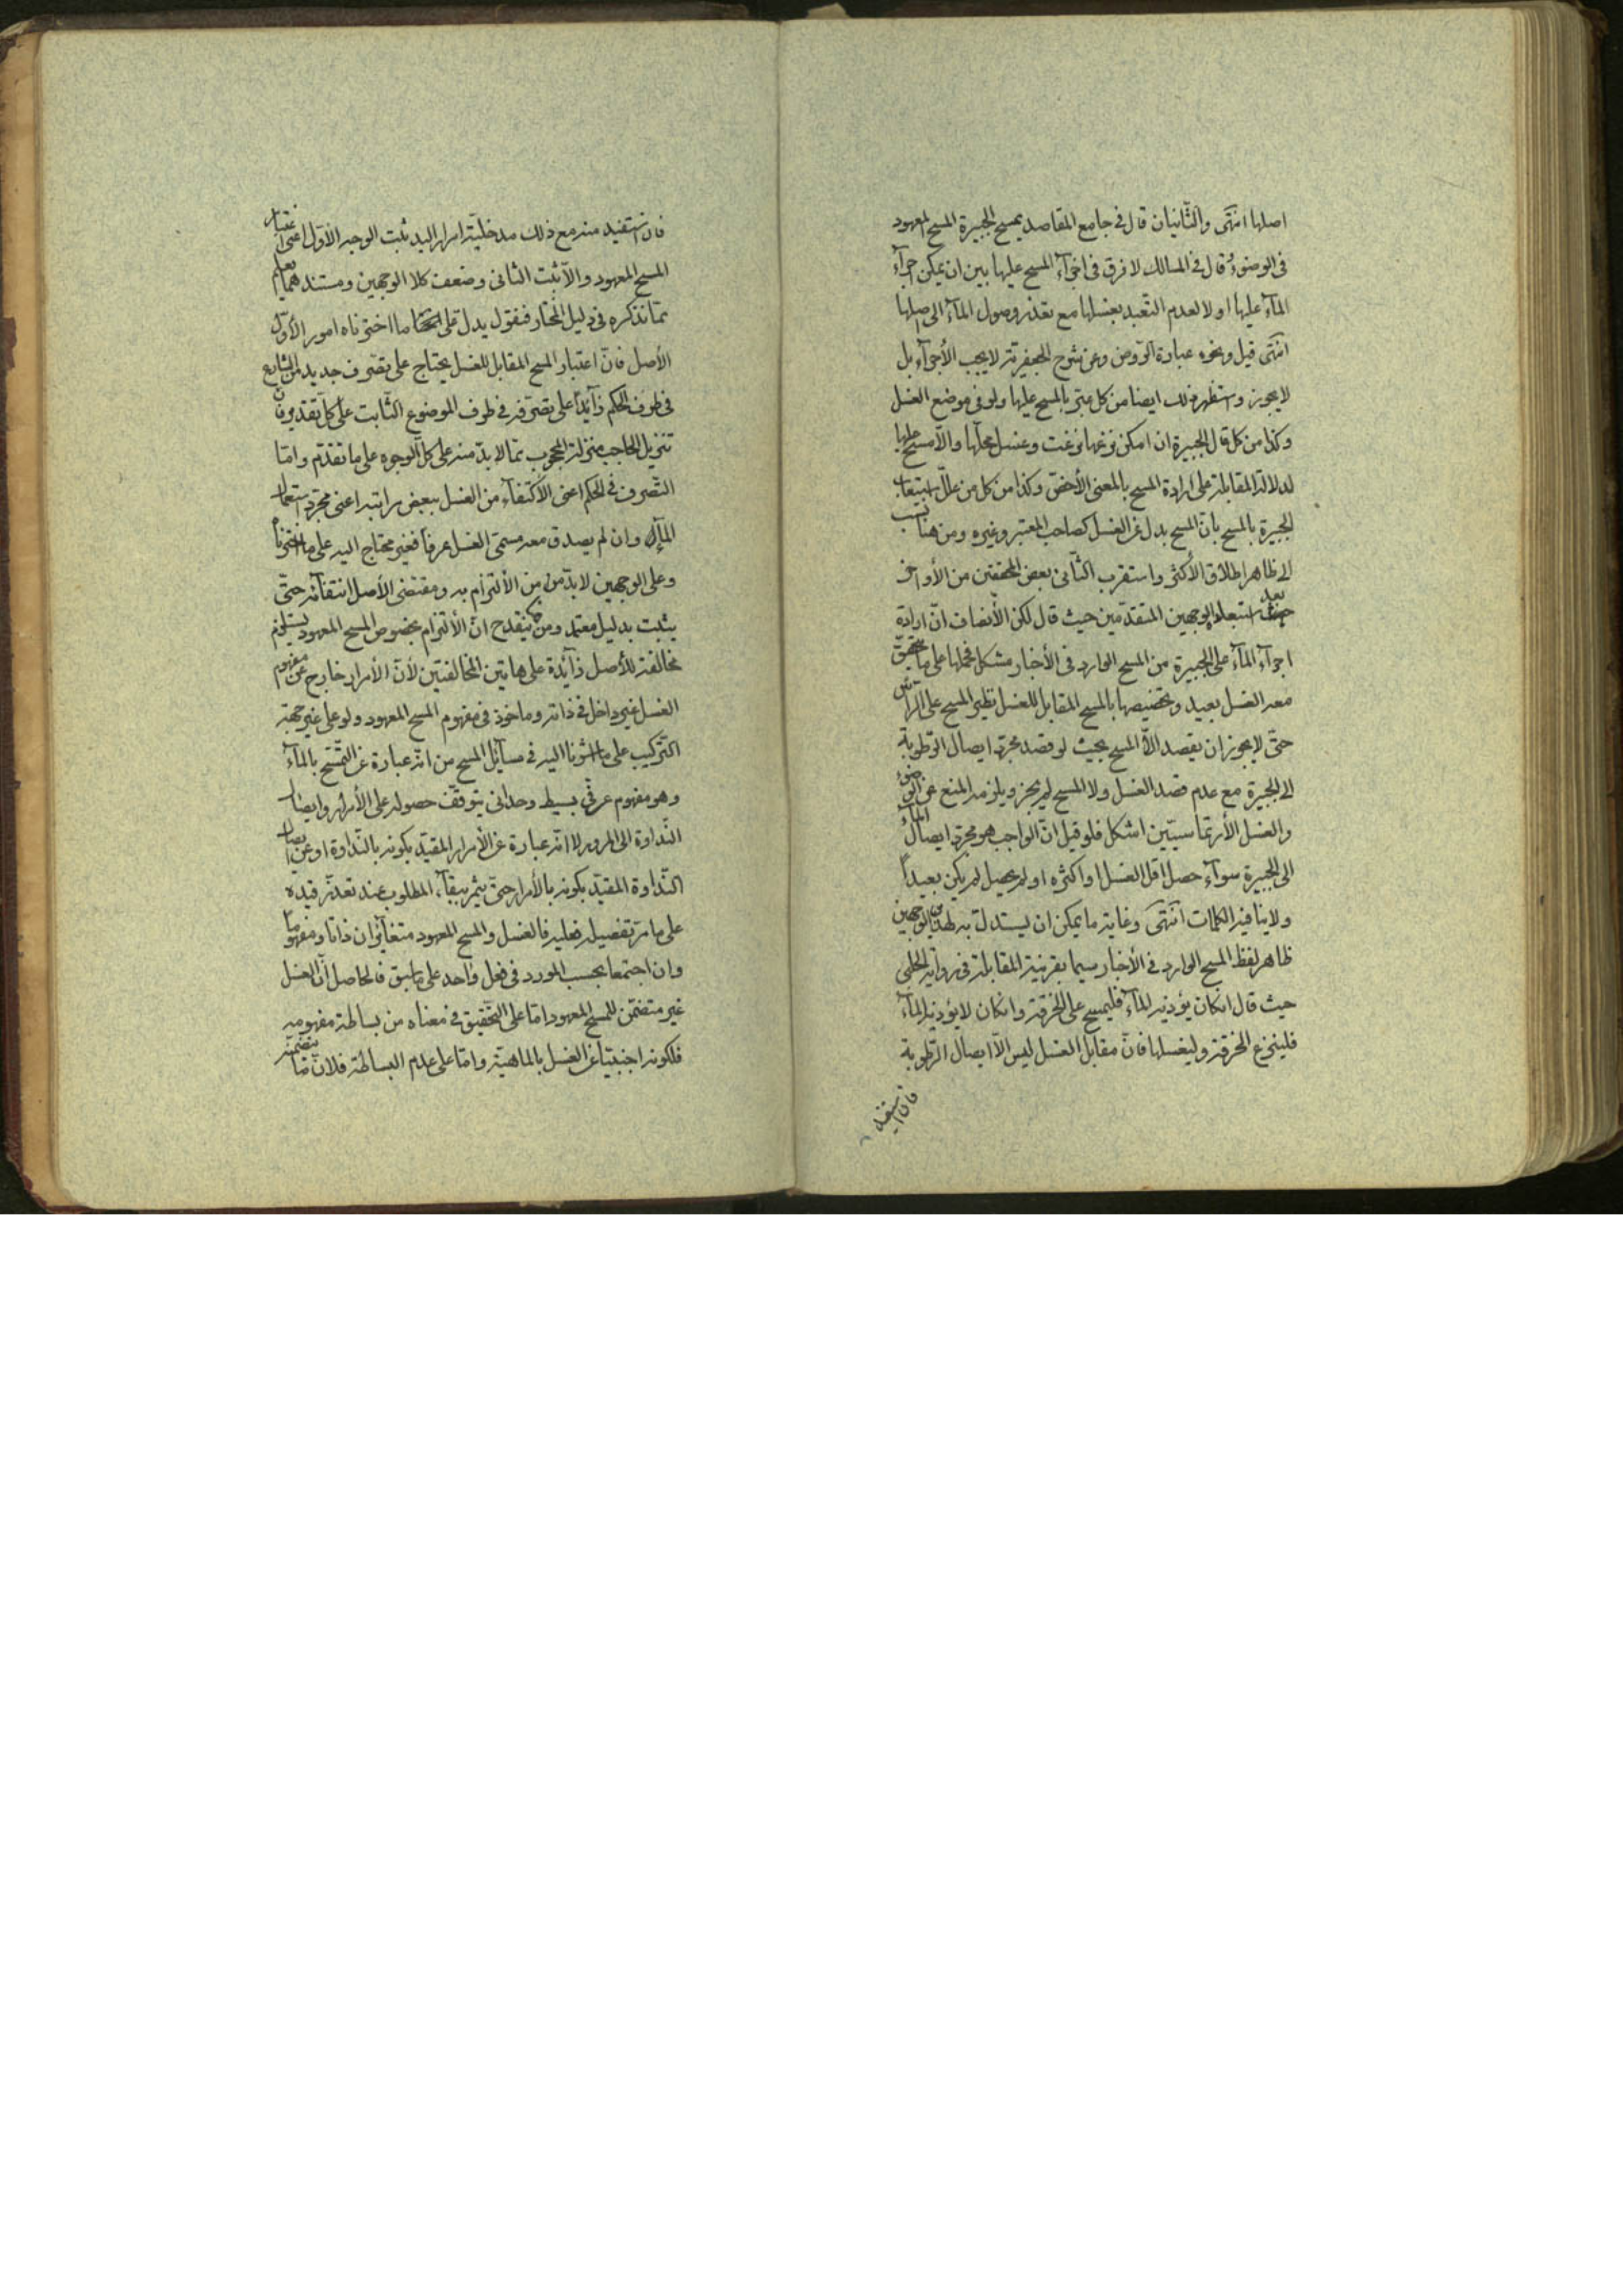 اصلها انتهى والثانيان قال في جامع المقاصد يمسح الجبيرة المسح المعهود
في الوضوء وقال في المسالك لا فرق في اجزاء المسح عليها بين ان يمكن اجراء
الماء عليها او لا لعدم التعبد بغسلها مع تعذر وصول الماء الى اصلها
انتهى قيل ونحوه عبارة الروض وعن شرح الجعفرية لا يجب الأجراء بل
لا يجوز واستظهر ذلك ايضا من كل عبر بالمسح عليها ولو في موضع الغسل
وكذا من كل قال الجبيرة ان امكن نزعها نزعت وغسل محلها والا مسح عليها
لدلالة المقابلة على ارادة المسح بالمعنى الأخص وكذا من كل من علل استيعاب
الجبيرة بالمسح بان المسح بدل عن الغسل كصاحب المعتبر وغيره ومن هنا نسب
الى ظاهر اطلاق الأكثر واستقرب الثاني بعض المحققين من الأواخر
بعد استبعاد الوجهين المتقدمين حيث قال لكن الأنصاف ان ارادة
اجراء الماء على الجبيرة من المسح الوارد في الأخبار مشكل فحملها على ما يتحقق
معه الغسل بعيد وتخصيصها بالمسح المقابل للغسل نظير المسح على الرأس
حتى لا يجوز ان يقصد الا المسح بحيث لو قصد مجرد ايصال الرطوبة
الى الجبيرة مع عدم قصد الغسل ولا المسح لم يجز ويلزمه المنع عن الوضوء
والغسل الأرتماسيين اشكل فلو قيل ان الواجب هو مجرد ايصال الماء
الى الجبيرة سواء حصل اقل الغسل او اكثره او لم يحصل لم يكن بعيدا
ولا ينافيه الكلمات انتهى وغاية ما يمكن ان يستدل به لهذين الوجهين
ظاهر لفظ المسح الوارد في الأخبار سيما بقرينة المقابلة في رواية الحلبي
حيث قال ان كان يؤذيه الماء فليمسح على الخرقة وان كان لا يؤذيه الماء
فلينزع الخرقة وليغسلها فان مقابل الغسل ليس الا ايصال الرطوبة
فان استفيد
فان استفيد منه مع ذلك مدخلية امرار اليد ثبت الوجه الأول اعنى اعتبار
المسح المعهود والا ثبت الثاني وضعف كلا الوجهين ومستندهما يعلم
مما نذكره في دليل المختار فنقول يدل على ما اخترناه امور الأول
الأصل فان اعتبار المسح المقابل للغسل يحتاج على تصرف جديد من الشارع
في طرف الحكم زائدا على تصرفه في طرف الموضوع الثابت على كل تقدير فان
تنزيل الحاجب منزلة المحجوب مما لا بد منه على كل الوجوه على ما تقدم واما
التصرف في الحكم اعنى الأكتفاء من الغسل ببعض مراتبه اعنى مجرد استعمال
الماء وان لم يصدق معه مسمى الغسل عرفا فغير محتاج اليه على ما اخترناه
وعلى الوجهين لا بد من الألتزام به ومقتضى الأصل انتفائه حتى
يثبت بدليل معتمد ومن هنا ينقدح ان الألتزام بخصوص المسح المعهود يستلزم
مخالفة للأصل زائدة على هاتين المخالفتين لأن الأمرار خارج عن مفهوم
الغسل غير داخل في ذاته وماخوذ في مفهوم المسح المعهود ولو على غير جهة
التركيب على ما اشرنا اليه في مسائل المسح من انه عبارة عن التمسح بالماء
وهو مفهوم عرفي بسيط وحداني يتوقف حصوله على الأمرار وايصال
النداوة الى المرور لا انه عبارة عن الأمرار المقيد بكونه بالنداوة او عن ايصال
النداوة المقيد بكونه بالأمرار حتى يثمر ببقاء المطلوب عند تعذر قيده
على ما مر تفصيله فعليه فالغسل والمسح المعهود متغايران ذاتا ومفهوما
وان اجتمعا بحسب المورد في فعل واحد على ما سبق فالحاصل ان الغسل
غير متضمن للمسح المعهود اما على التحقيق في معناه من بساطة مفهومه
فلكونه اجنبيا عن الغسل بالماهية واما على عدم البساطة فلان ما يتضمنه